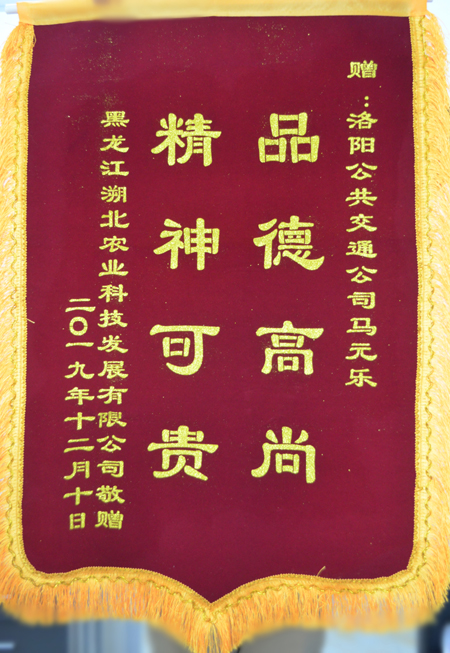 赠：洛阳公共交通公司马元乐
品德高尚
精神可贵
黑龙江溯北农业科技发展有限公司敬赠
二〇一九年十二月十日